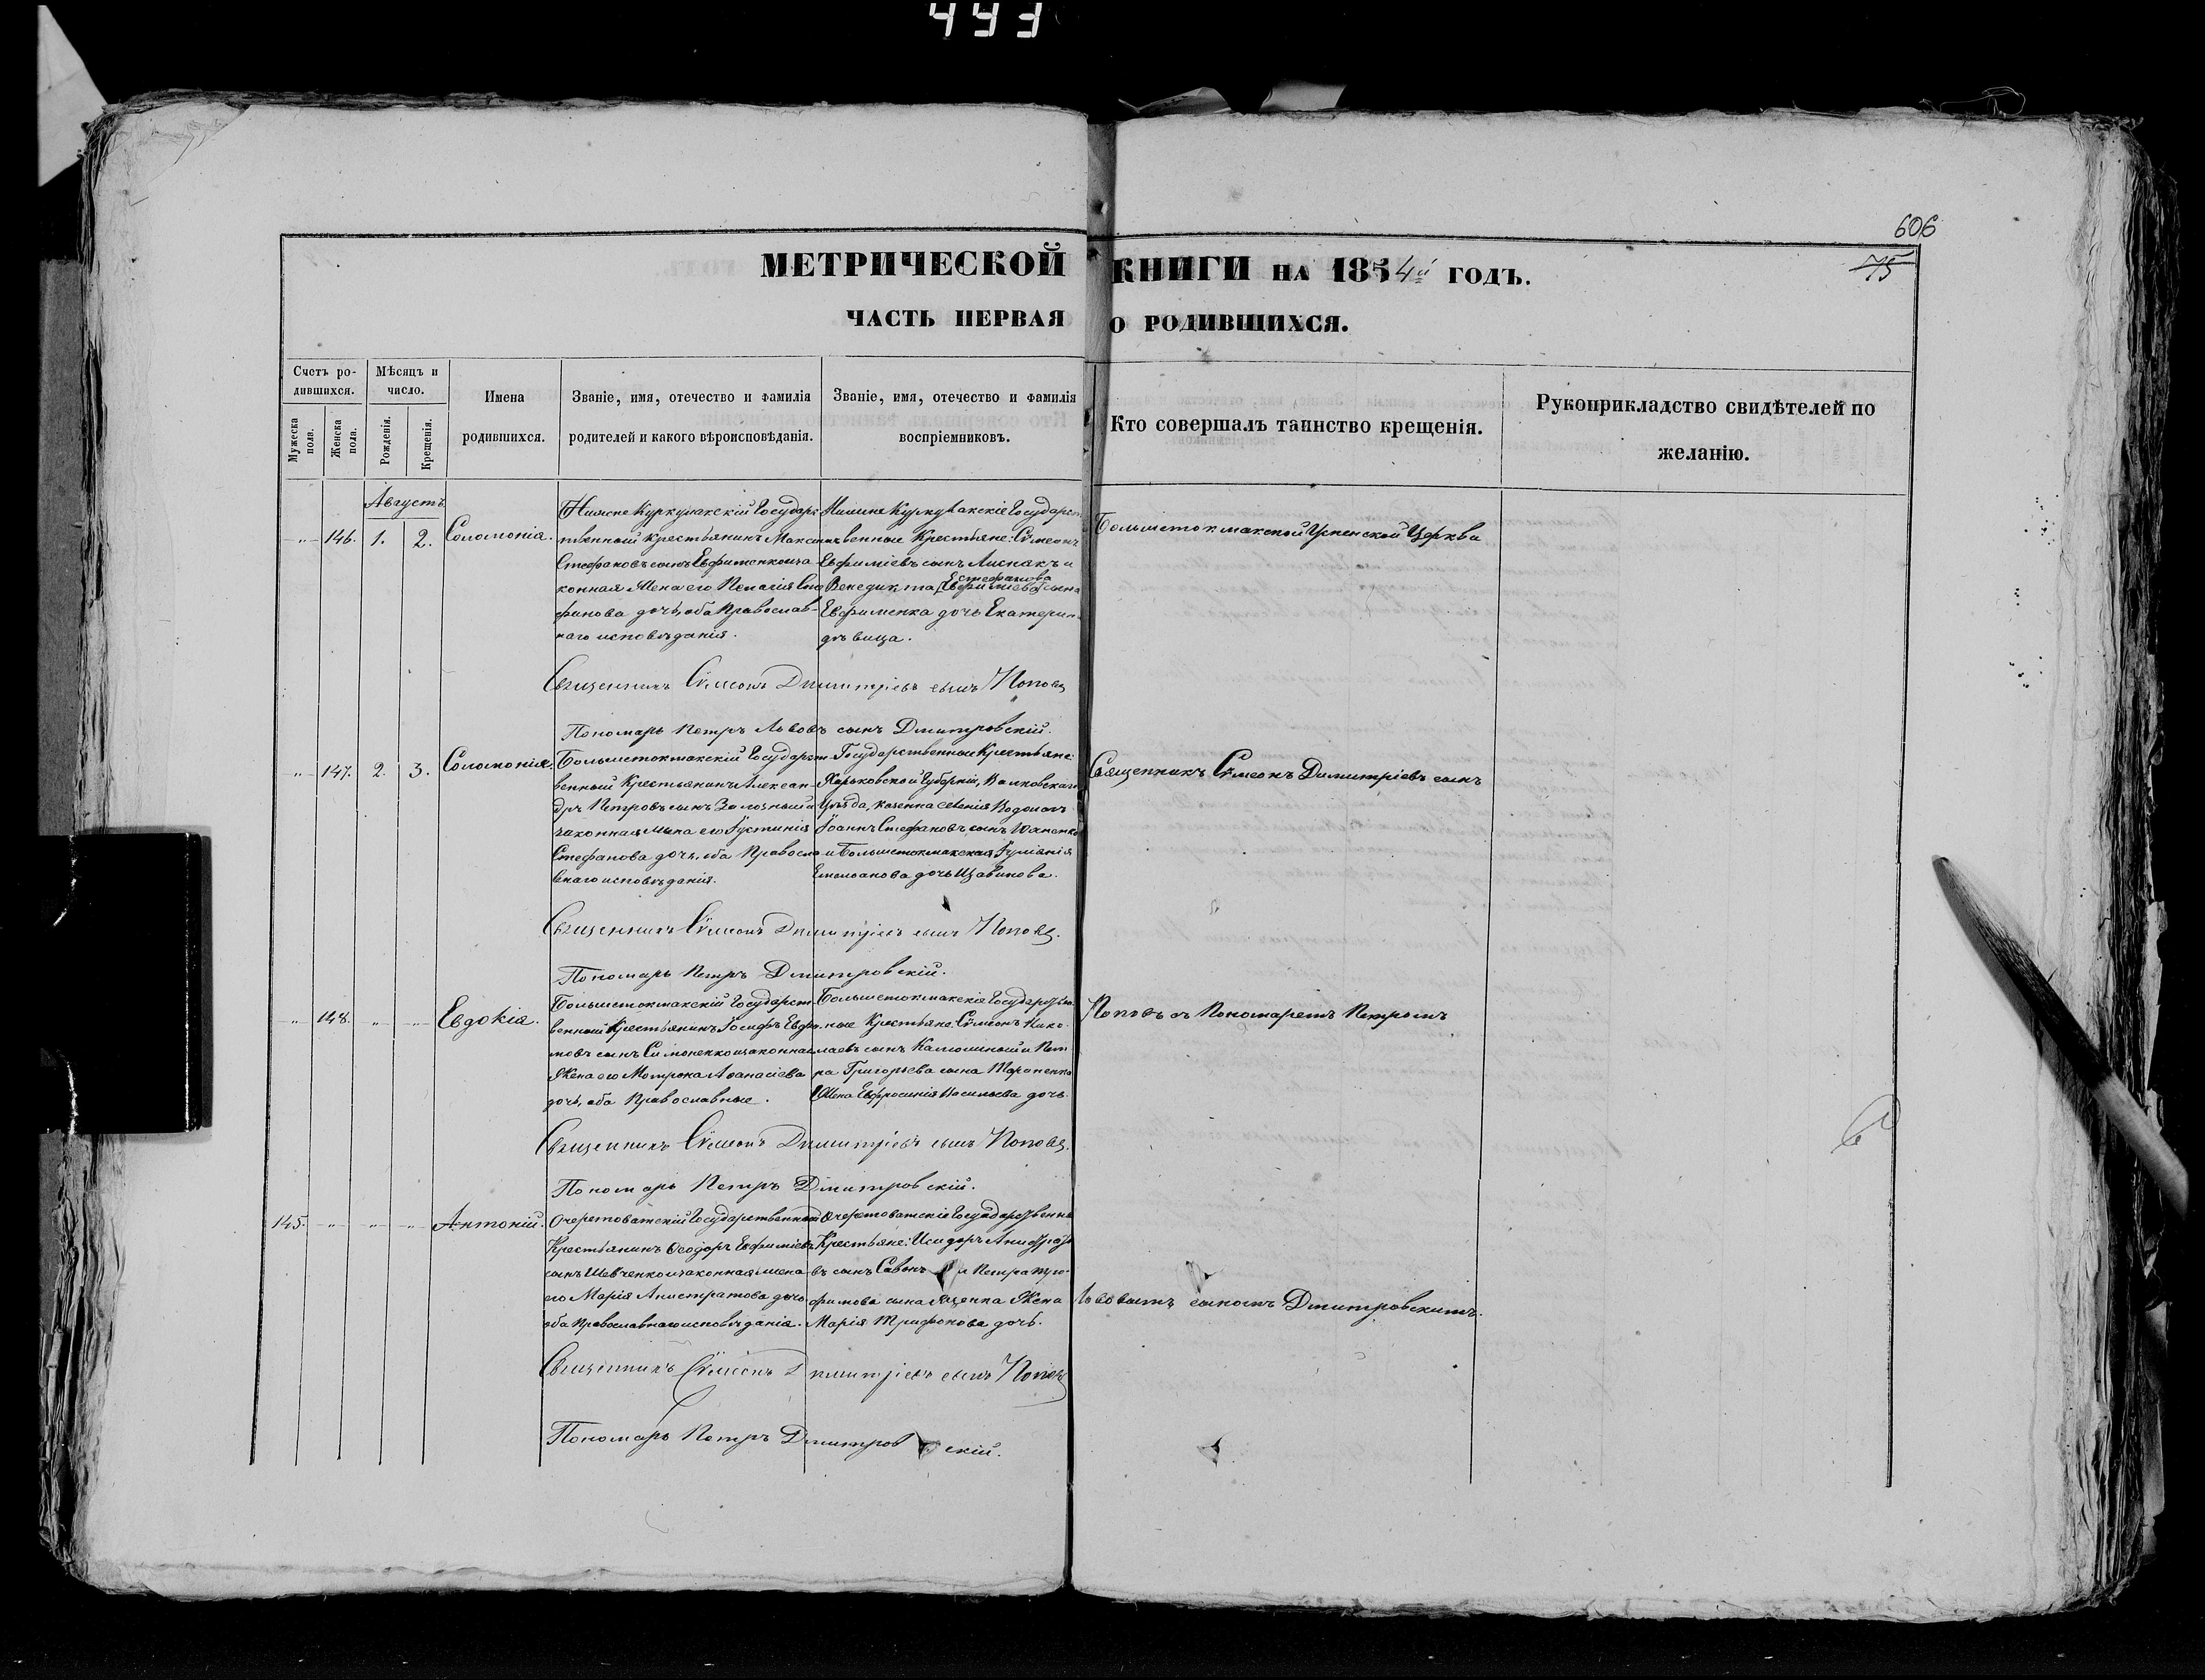 493
606
75
МЕТРИЧЕСКОЙ КНИГИ НА 1854й ГОДЪ.
ЧАСТЬ ПЕРВАЯ О РОДИВШИХСЯ.
Счетъ ро-
дившихся.
Мужеска
пола.
Женска
пола.
Мѣсяцъ и
число.
Рожденія.
Крещенія.
Имена
родившихся.
Званіе, имя, отечество и фамилія
родителей и какого вѣроисповѣданія.
Званіе, имя, отечество и фамилія
воспріемниковъ.
Кто совершалъ таинство крещенія.
Рукоприкладство свидѣтелей по
желанію.
Августъ
146. 1. 2. Соломонія.
Нижне Куркулакскій Государс
твенный Крестьянинъ Максим
Стефановъ сынъ Евфименко иза
конная Жена его Пелагія Сте
фанова дочь, оба Православ-
наго исповѣданія.
Нижне Куркулакскіе Государст
венные Крестьяне: Сѵмеонъ
Евфиміевъ сынъ Лиснякъ и
Стефанова
Венедикта Евфиміева сына
Евфименка дочь Екатерин
дѣвица.
Большетокмакской Успенской Церкви
Священникъ Сѵмеонъ Димитріевъ сынъ Поповъ
Пономарь Петръ Львовъ сынъ Дмитровскій.
147. 2. 3. Соломонія.
Большетокмакскій Государст
венный Крестьянинъ Алексан-
дръ Петровъ сынъ Зализный и
законная жена его Іустинія
Стефанова дочь, оба Правосла
внаго исповѣданія.
Государственные Крестьяне:
Харьковской Губерніи, Валковскаго
Уѣзда, казенна селенія Водолагъ
Іоаннъ Стефановъ сынъ Юхненко
и Большетокмакская Іуліанія
Емельянова дочь Щавинова.
Священникъ Сѵмеонъ Димитріевъ сынъ
Священникъ Сѵмеонъ Димитріевъ сынъ Поповъ.
Пономарь Петръ Дмитровскій.
148. Евдокія.
Большетокмакскій Государст
венный Крестьянинъ Іосифъ Евдо
мовъ сынъ Симоненко изаконная
Жена его Мотрона Аѳанасіева
дочь, оба Православные.
Большетокмакскіе Государствен
ные Крестьяне: Сѵмеонъ Нико
лаевъ сынъ Калюжный и Пет
ра Григорьева сына Тараненка
Жена Евфросинія Васильева дочь
Поповъ съ Пономаремъ Петромъ
Священникъ Сѵмеонъ Димитріевъ сынъ Поповъ.
Пономарь Петръ Дмитровскій.
145. Антоній.
Очеретоватскій Государственный
Крестьянинъ Ѳеодоръ Евфиміевъ
сынъ Шевченко изаконная жена
его Марія Анистратова дочь
оба Православнаго исповѣданія.
Очеретоватскіе Государственны
Крестьяне: Исидоръ Анистрато
въ сынъ и Петра Тро-
фимова сына Жена
Марія Трифонова дочь.
Львовымъ сыномъ Дмитровскимъ.
Священникъ Сѵмеонъ Димитріевъ сынъ Поповъ
Пономарь Петръ Дмитровскій.